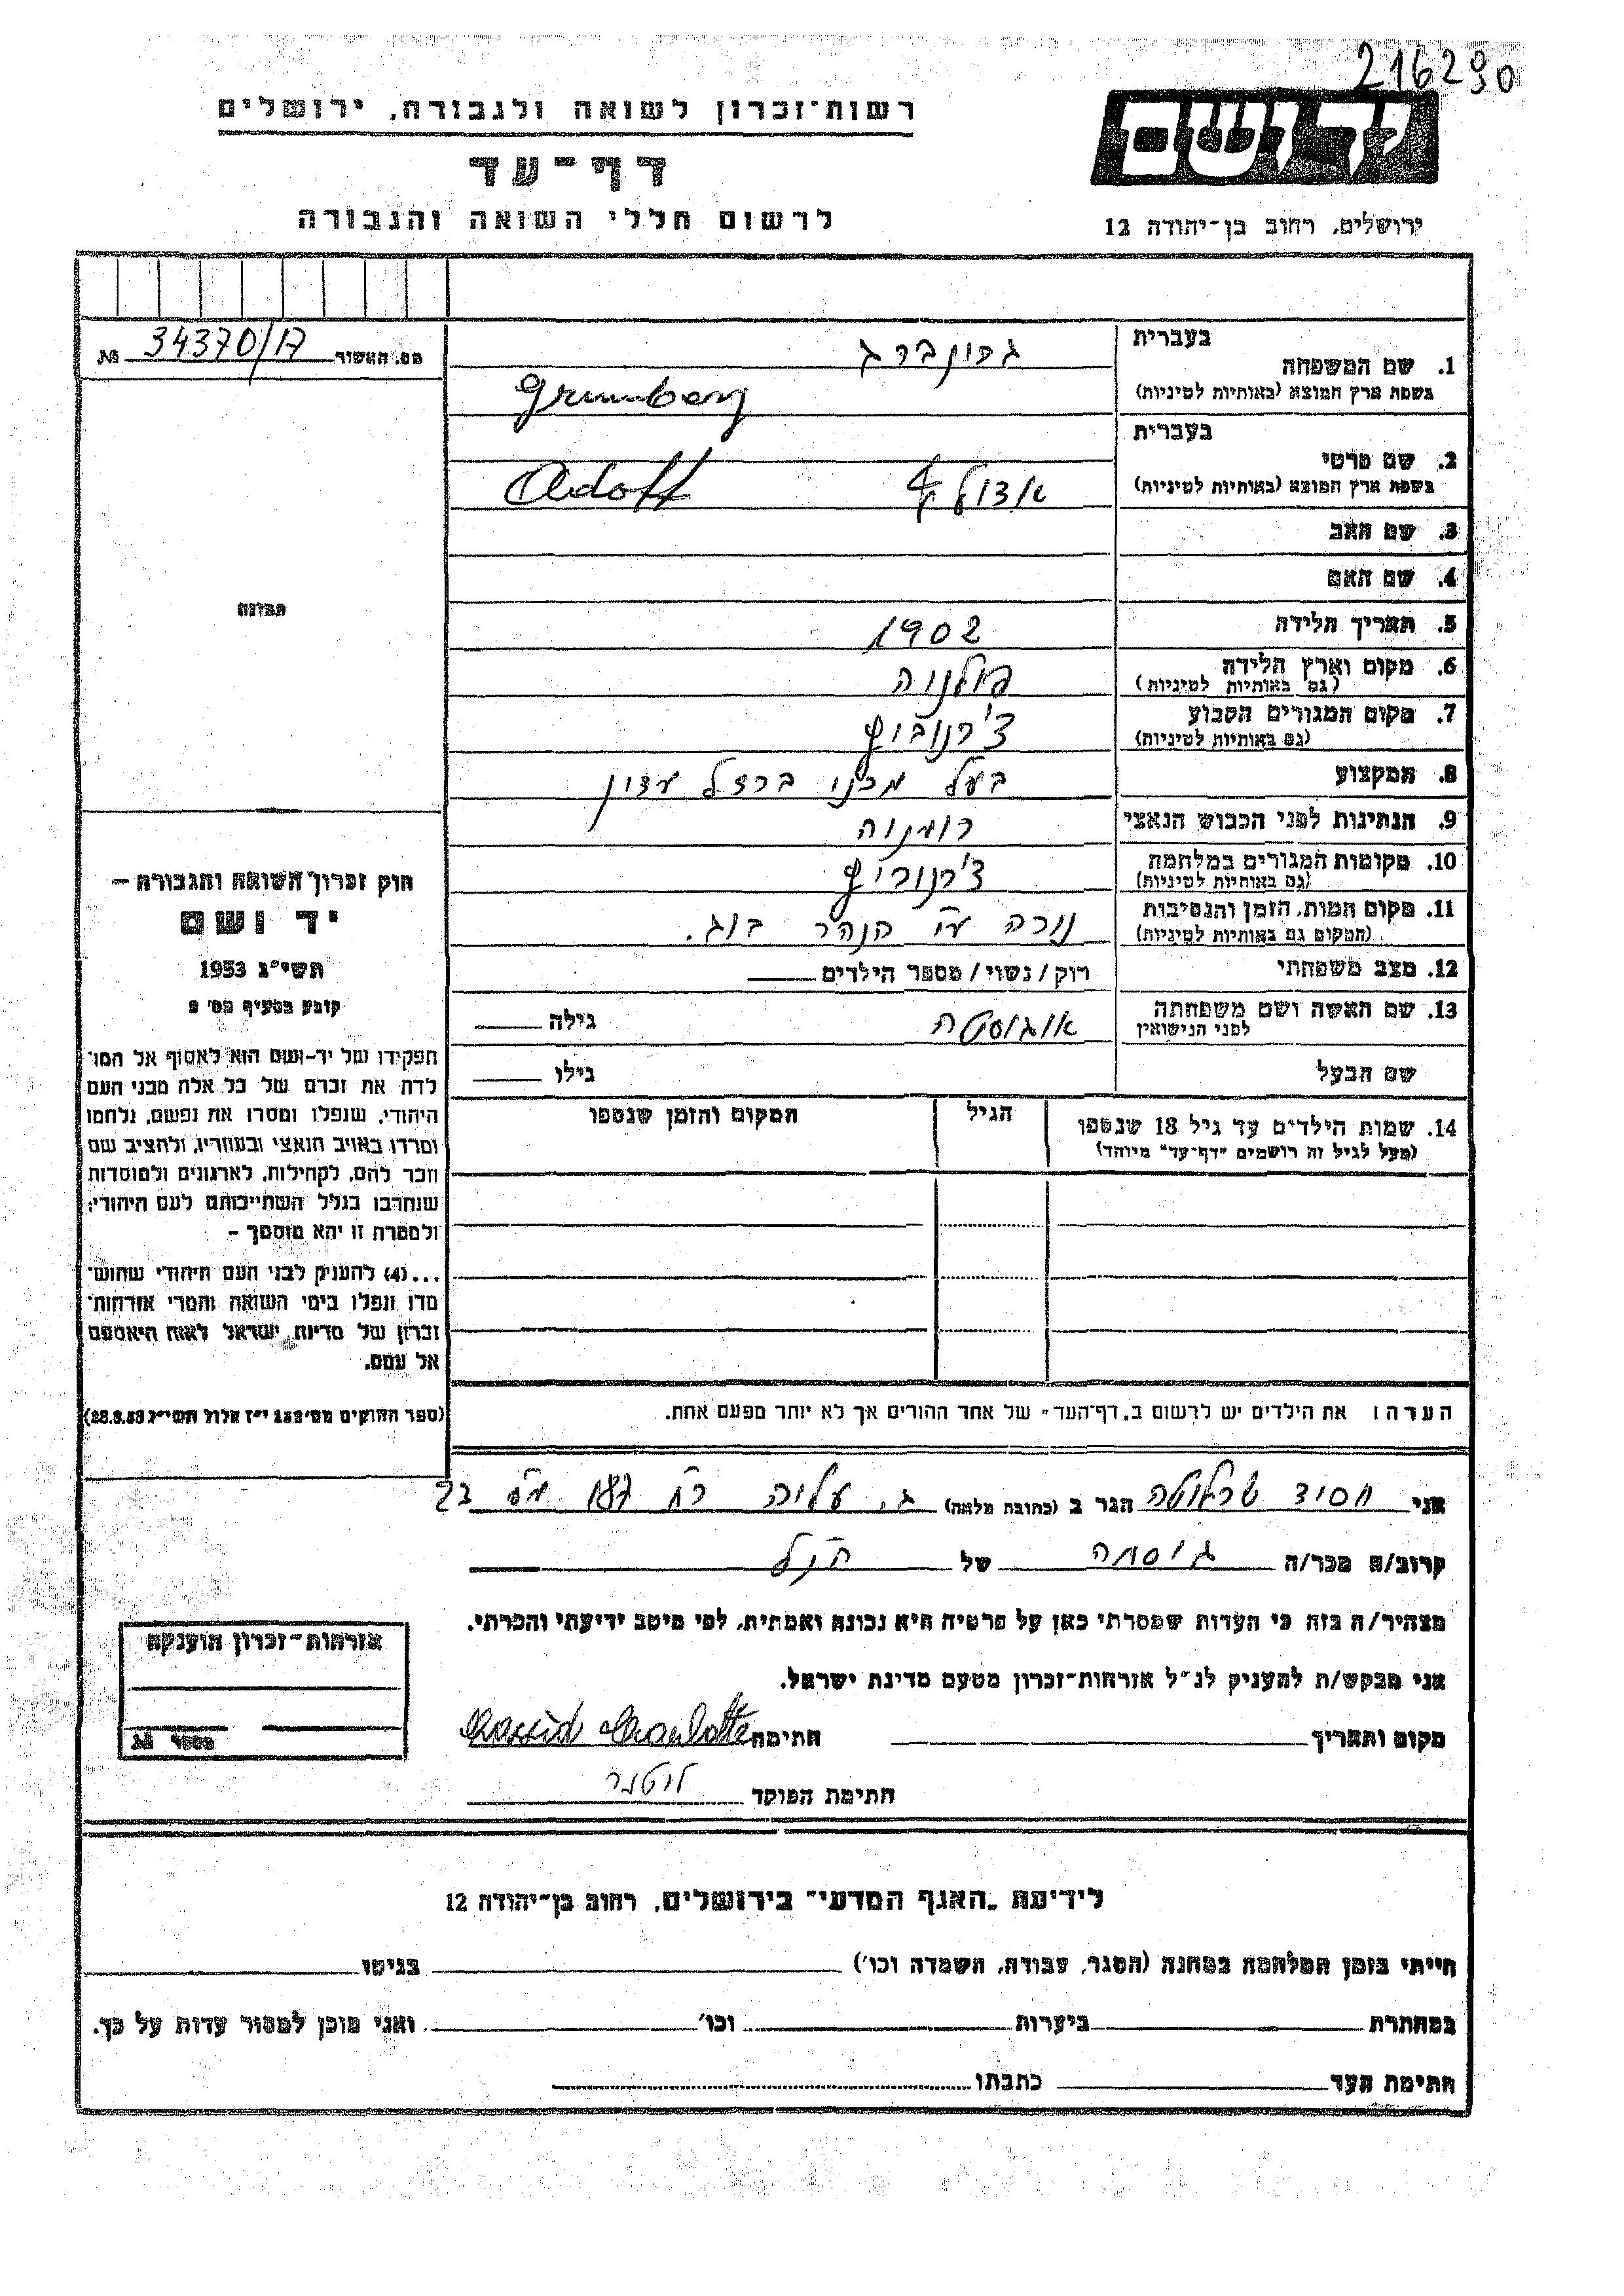 216290
יד ושם
רשות-זכרון לשואה ולגבורה, ירושלים
דף-עד
לרשום חללי השואה והגבורה
ירושלים, רחוב בן-יהודה 12
מס. האשור 34370/17 №
תמונה
חוק זכרון השואה והגבורה –
יד ושם
תשי"ג 1953
קובע בסעיף מס' 2
תפקידו של יד-ושם הוא לאסוף אל המו־
לדת את זכרם של כל אלה מבני העם
היהודי, שנפלו ומסרו את נפשם, נלחמו
ומרדו באויב הנאצי ובעוזריו, ולהציב שם
וזכר להם, לקהילות, לארגונים ולמוסדות
שנחרבו בגלל השתייכותם לעם היהודי;
ולמטרה זו יהא מוסמך –
...(4) להעניק לבני העם היהודי שהוש־
מדו ונפלו בימי השואה והמרי אזרחות־
זכרון של מדינת ישראל לאות היאספם
אל עמם.
(ספר החוקים מס' 132 י"ז אלול תשי"ג 28.8.53)
בעברית
1. שם המשפחה גרונברג
בשפת ארץ המוצא (באותיות לטיניות) Grumberg
בעברית
2. שם פרטי
בשפת ארץ המוצא (באותיות לטיניות) אדולף Adolf
3. שם האב
4. שם האם
5. תאריך הלידה 1902
6. מקום וארץ הלידה פולניה
(גם באותיות לטיניות)
7. מקום המגורים הקבוע צ'רנוביץ
(גם באותיות לטיניות)
8. המקצוע בעל מכני ברזל
9. הנתינות לפני הכבוש הנאצי רומניה
10. מקומות המגורים במלחמה צ'רנוביץ
(גם באותיות לטיניות)
11. מקום המות, הזמן והנסיבות נורה ע"י הנהר בוג.
(המקום גם באותיות לטיניות)
12. מצב משפחתי רוק / נשוי / מספר הילדים
13. שם האשה ושם משפחתה אוגוסטה גילה
לפני הנישואין
שם הבעל גילו
14. שמות הילדים עד גיל 18 שנספו הגיל המקום והזמן שנספו
(מעל לגיל זה רושמים "דף-עד" מיוחד)
הערה: את הילדים יש לרשום ב"דף-העד" של אחד ההורים אך לא יותר מפעם אחת.
אני חסיד שרלוטה הגר ב (כתובת מלאה) ג. עליה רח 187 מס 22
קרוב/ה מכר/ה גיסתה של הנ"ל
מצהיר/ה בזה כי העדות שמסרתי כאן על פרטיה היא נכונה ואמתית, לפי מיטב ידיעתי והכרתי.
אני מבקש/ת להעניק לנ"ל אזרחות-זכרון מטעם מדינת ישראל.
מקום ותאריך חתימה Hassid Charlotte
חתימת הפוקד
אזרחות-זכרון הוענקה
מספר №
לידיעת "האגף המדעי" בירושלים, רחוב בן-יהודה 12
הייתי בזמן המלחמה במחנה (הסגר, עבודה, השמדה וכו') בגיטו
במחתרת ביערות וכו' ואני מוכן למסור עדות על כך.
חתימת העד כתבתו